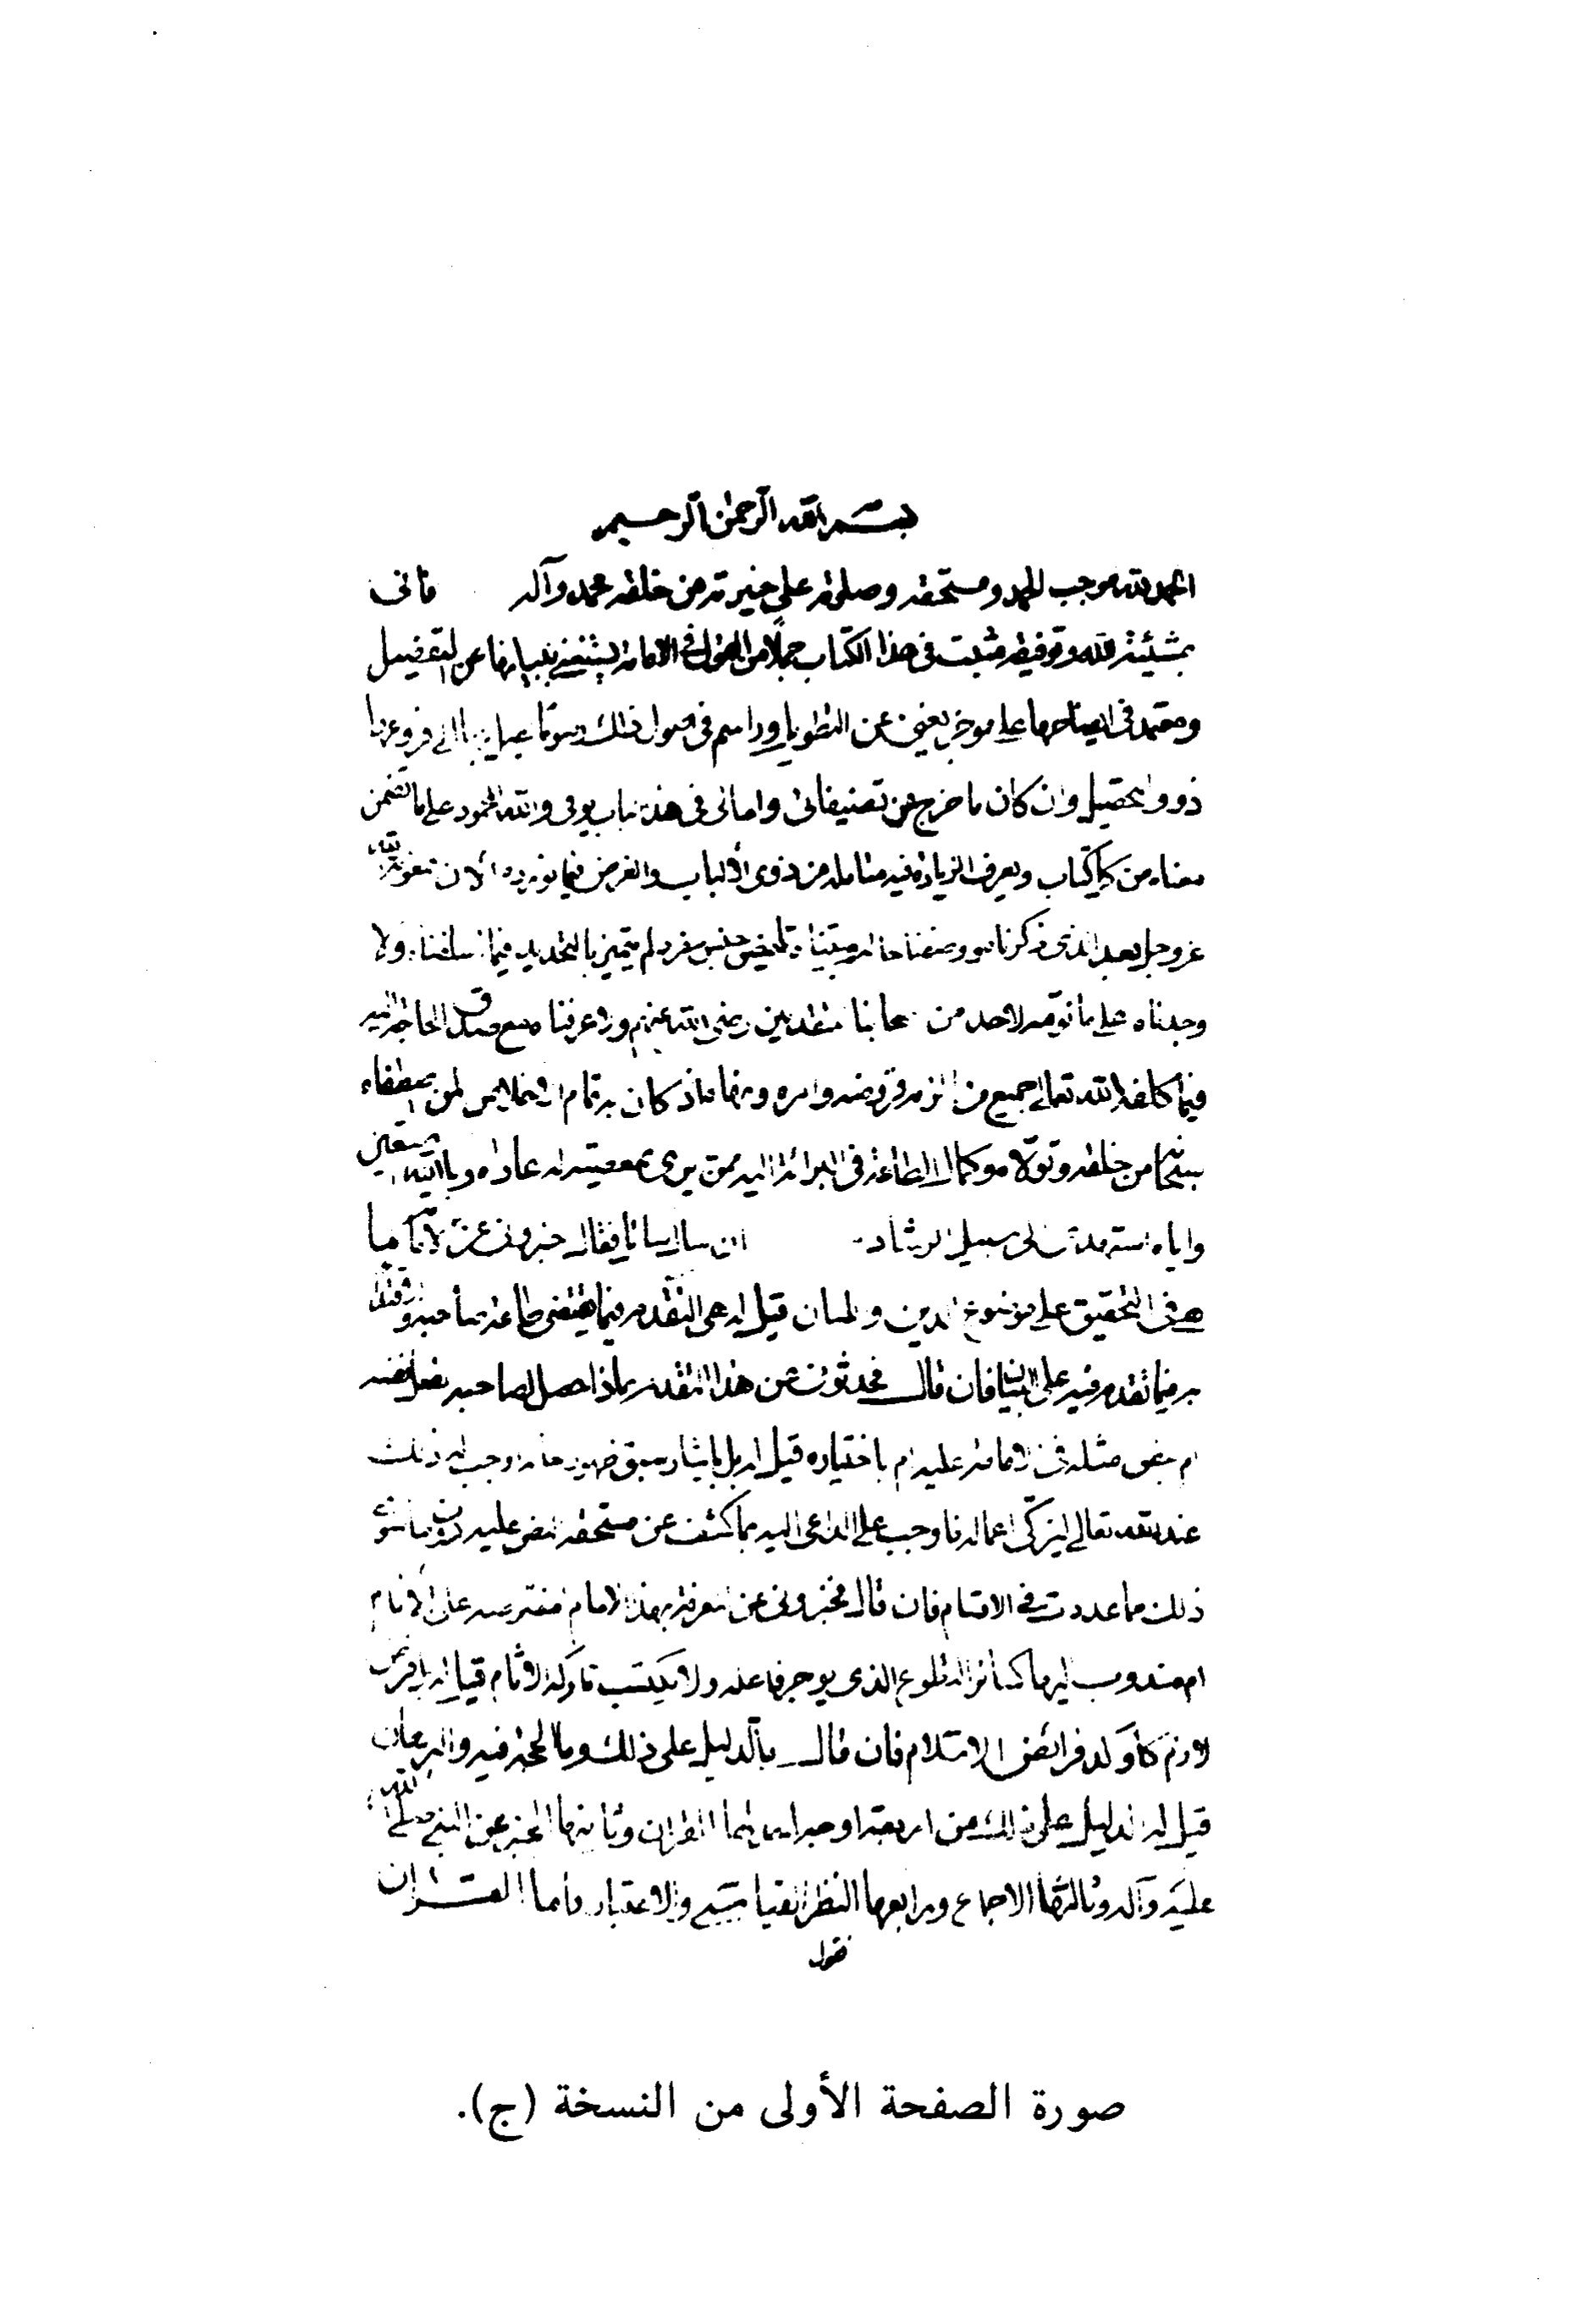 بسم الله الرحمن الرحيم
الحمد لله موجب الحمد ومستحقه وصلوته على خيرته من خلقه محمد وآله فانى
بمشيئة الله وتوفيقه مثبت فى هذا الكتاب جملا من القول فى الامامة يستغنى ببيانها عن التفضيل
ومعتمد فى ايضاحها على موجز يغنى عن التطويل وراسم فى اصول ذلك رسوما يصل بها الى فروعها
ذووا التحصيل وان كان ما خرج من تصنيفاتى وامالى فى هذه يوفى والله المحمود على ما تضمن
معناه من كل كتاب ويعرف الزيادة فيه متامله من ذوى الالباب والغرض فيما نورده الان بمعونة الله
عز وجل بعد الذى ذكرناه ووصفنا حاله وبيناه تلخيص جنس مفرد لم يتميز بالتحديد فيما سلفناه ولا
وجدناه على ما نومه لاحد من صحابنا متقدمين رضى الله عنهم ولا عرفناه مع صدق الحاجة اليه
فيما كلفه الله تعالى جميع من الزمه فروضه وامره ونهاه اذ كان به تمام الاخلاص لمن اصطفاه
سبحانه من خلقه وتولاه وكمال الطاعة فى البرائة اليه ممن يرى بمعصيته له عاداه وبالله استعين
واياه استهدى الى سبيل الرشاد ان سال سائل فقال خبرونى عن الامامة ما
هى فى التحقيق على موضوع الدين واللسان قيل له هى التقدم فيما يقتضى طاعة صاحبه والاقتداء
به فيما تقدم فيه على البيان فان قال فحدثونى عن هذا التقدم بماذا حصل لصاحبه بفعل نفسه
ام بنص مثله فى الامامة عليه ام باختياره قيل له بل بايثار سبق ظهور حاله اوجب له ذلك
عند الله تعالى ليزكى اعماله فاوجب على الداعى اليه بما كشف عن مستحقه النص عليه دون ما سوى
ذلك مما عددت فى الاقسام فان قال فخبرونى عن المعرفة بهذا الامام مفترضه على الانام
ام مندوب اليها كسائر التطوع الذى يوجر فاعله ولا يكتسب تاركه الاثام قيل له بل فرض
لازم كاوكد فرائض الاسلام فان قال ما الدليل على ذلك وما الحجة فيه والبرهان
قيل له الدليل على ذلك من اربعة اوجه اولها القران وثانيها الخبر عن النبى صلى الله
عليه وآله وثالثها الاجماع ورابعها النظر القياسى والاعتبار فاما القران
فقول
صورة الصفحة الأولى من النسخة (ج).